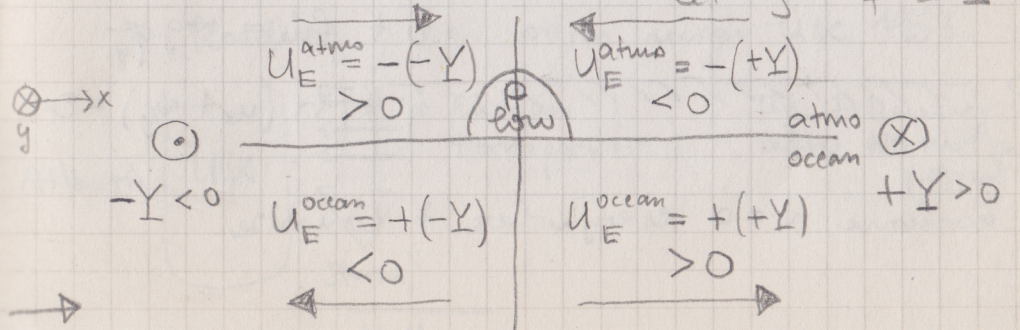 U_E^atmo = -(-Y)
> 0
U_E^atmo = -(+Y)
< 0
P
low
x
y
atmo
ocean
-Y < 0
+Y > 0
U_E^ocean = +(-Y)
< 0
U_E^ocean = +(+Y)
> 0